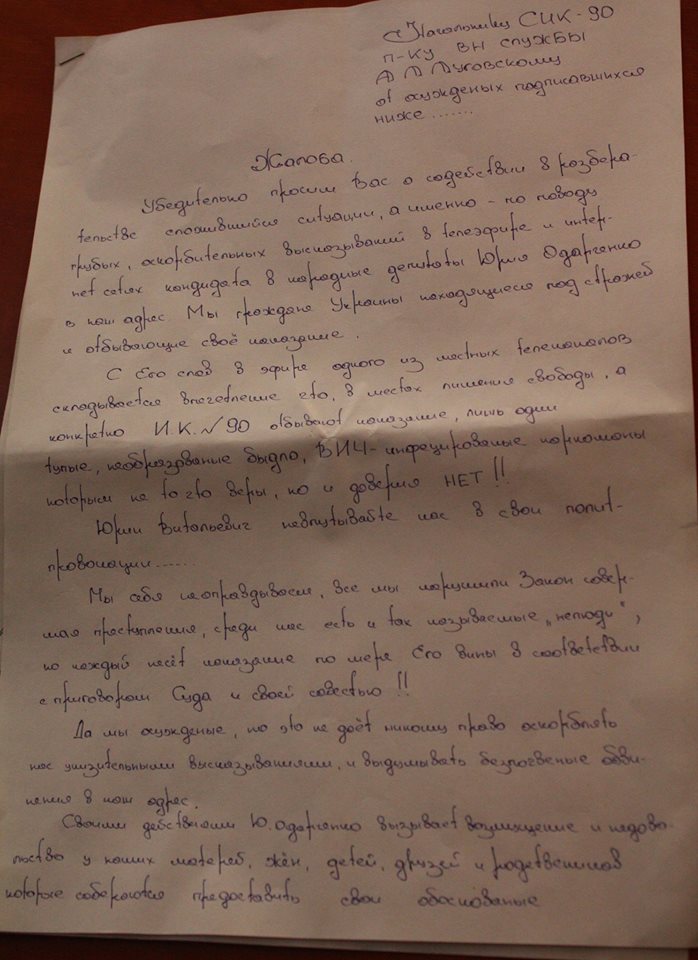 Начальнику СИК-90
п-ку вн службы
от осужденых подписавшихся
ниже.......
Жалоба.
Убедительно просим Вас о содействии в розбера-
тельстве сложившийся ситуации, а именно - по поводу
грубых, оскорбительных высказываний в телеэфире и интер-
нет сетях кандидата в народные депутаты Юрия Одарченко
в наш адрес. Мы граждане Украины находящиеся под стражей
и отбывающие своё наказание.
С Его слов в эфире одного из местных телеканалов
складывается впечетление что, в местах лишения свободы, а
конкретно И.К.№90 отбывают наказание, лишь одни
тупые, необразованые быдло, ВИЧ-инфецированые наркоманы
которым не то что веры, но и доверия НЕТ!!
Юрий Витальевич невпутывайте нас в свои полит-
провокации......
Мы себя неоправдываем, все мы нарушили Закон совер-
шая преступления, среди нас есть и так называемые „нелюди",
но каждый несёт наказание по мере Его вины в соответствии
с приговором Суда и своей совестью!!
Да мы осужденые, но это не даёт никому право оскорблять
нас унизительными высказываниями, и выдумывать безпочвеные обви-
нения в наш адрес.
Своими действиями Ю.Одарченко вызывает возмущение и недово-
льство у наших матерей, жён, детей, друзей и родствеников
которые собераются предоставить свои обоснованые